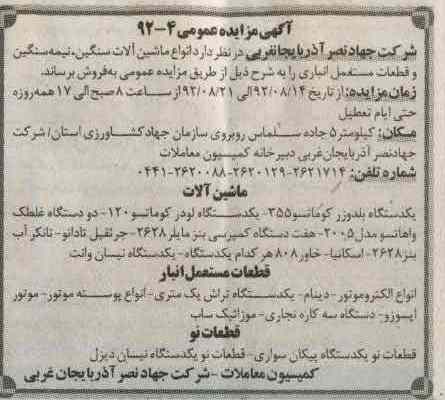 آگهی مزایده عمومی ۴-۹۲
شرکت جهاد نصر آذربایجانغربی در نظر دارد انواع ماشین آلات سنگین، نیمه سنگین
و قطعات مستعمل انباری را به شرح ذیل از طریق مزایده عمومی به فروش برساند.
زمان مزایده: از تاریخ ۹۲/۰۸/۱۴ الی ۹۲/۰۸/۲۱ از ساعت ۸ صبح الی ۱۷ همه روزه
حتی ایام تعطیل
مکان: کیلومتر ۵ جاده سلماس روبروی سازمان جهاد کشاورزی استان/ شرکت
جهاد نصر آذربایجان غربی دبیرخانه کمیسیون معاملات
شماره تلفن: ۲۶۲۱۷۱۴-۲۶۲۰۱۲۹-۲۶۲۰۰۸۸-۰۴۴۱
ماشین آلات
یکدستگاه بلدوزر کوماتسو ۳۵۵- یکدستگاه لودر کوماتسو ۱۲۰- دو دستگاه غلطک
واهاتسو مدل ۲۰۰۵- هفت دستگاه کمپرسی بنز مایلر ۲۶۲۸- جرثقیل تادانو- تانکر آب
بنز ۲۶۲۸- اسکانیا- خاور ۸۰۸ هر کدام یکدستگاه- یکدستگاه نیسان وانت
قطعات مستعمل انبار
انواع الکتروموتور- دینام- یکدستگاه تراش یک متری- انواع پوسته موتور- موتور
ایسوزو- دستگاه سه کاره نجاری- موزائیک ساب
قطعات نو
قطعات نو یکدستگاه پیکان سواری- قطعات نو یکدستگاه نیسان دیزل
کمیسیون معاملات -شرکت جهاد نصر آذربایجان غربی